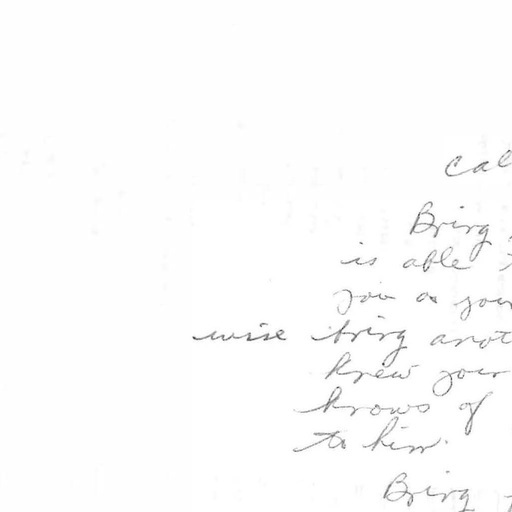 Cal
Bring
is able
you or your
wise bring anot
knew your
knows of
to him.
Bring